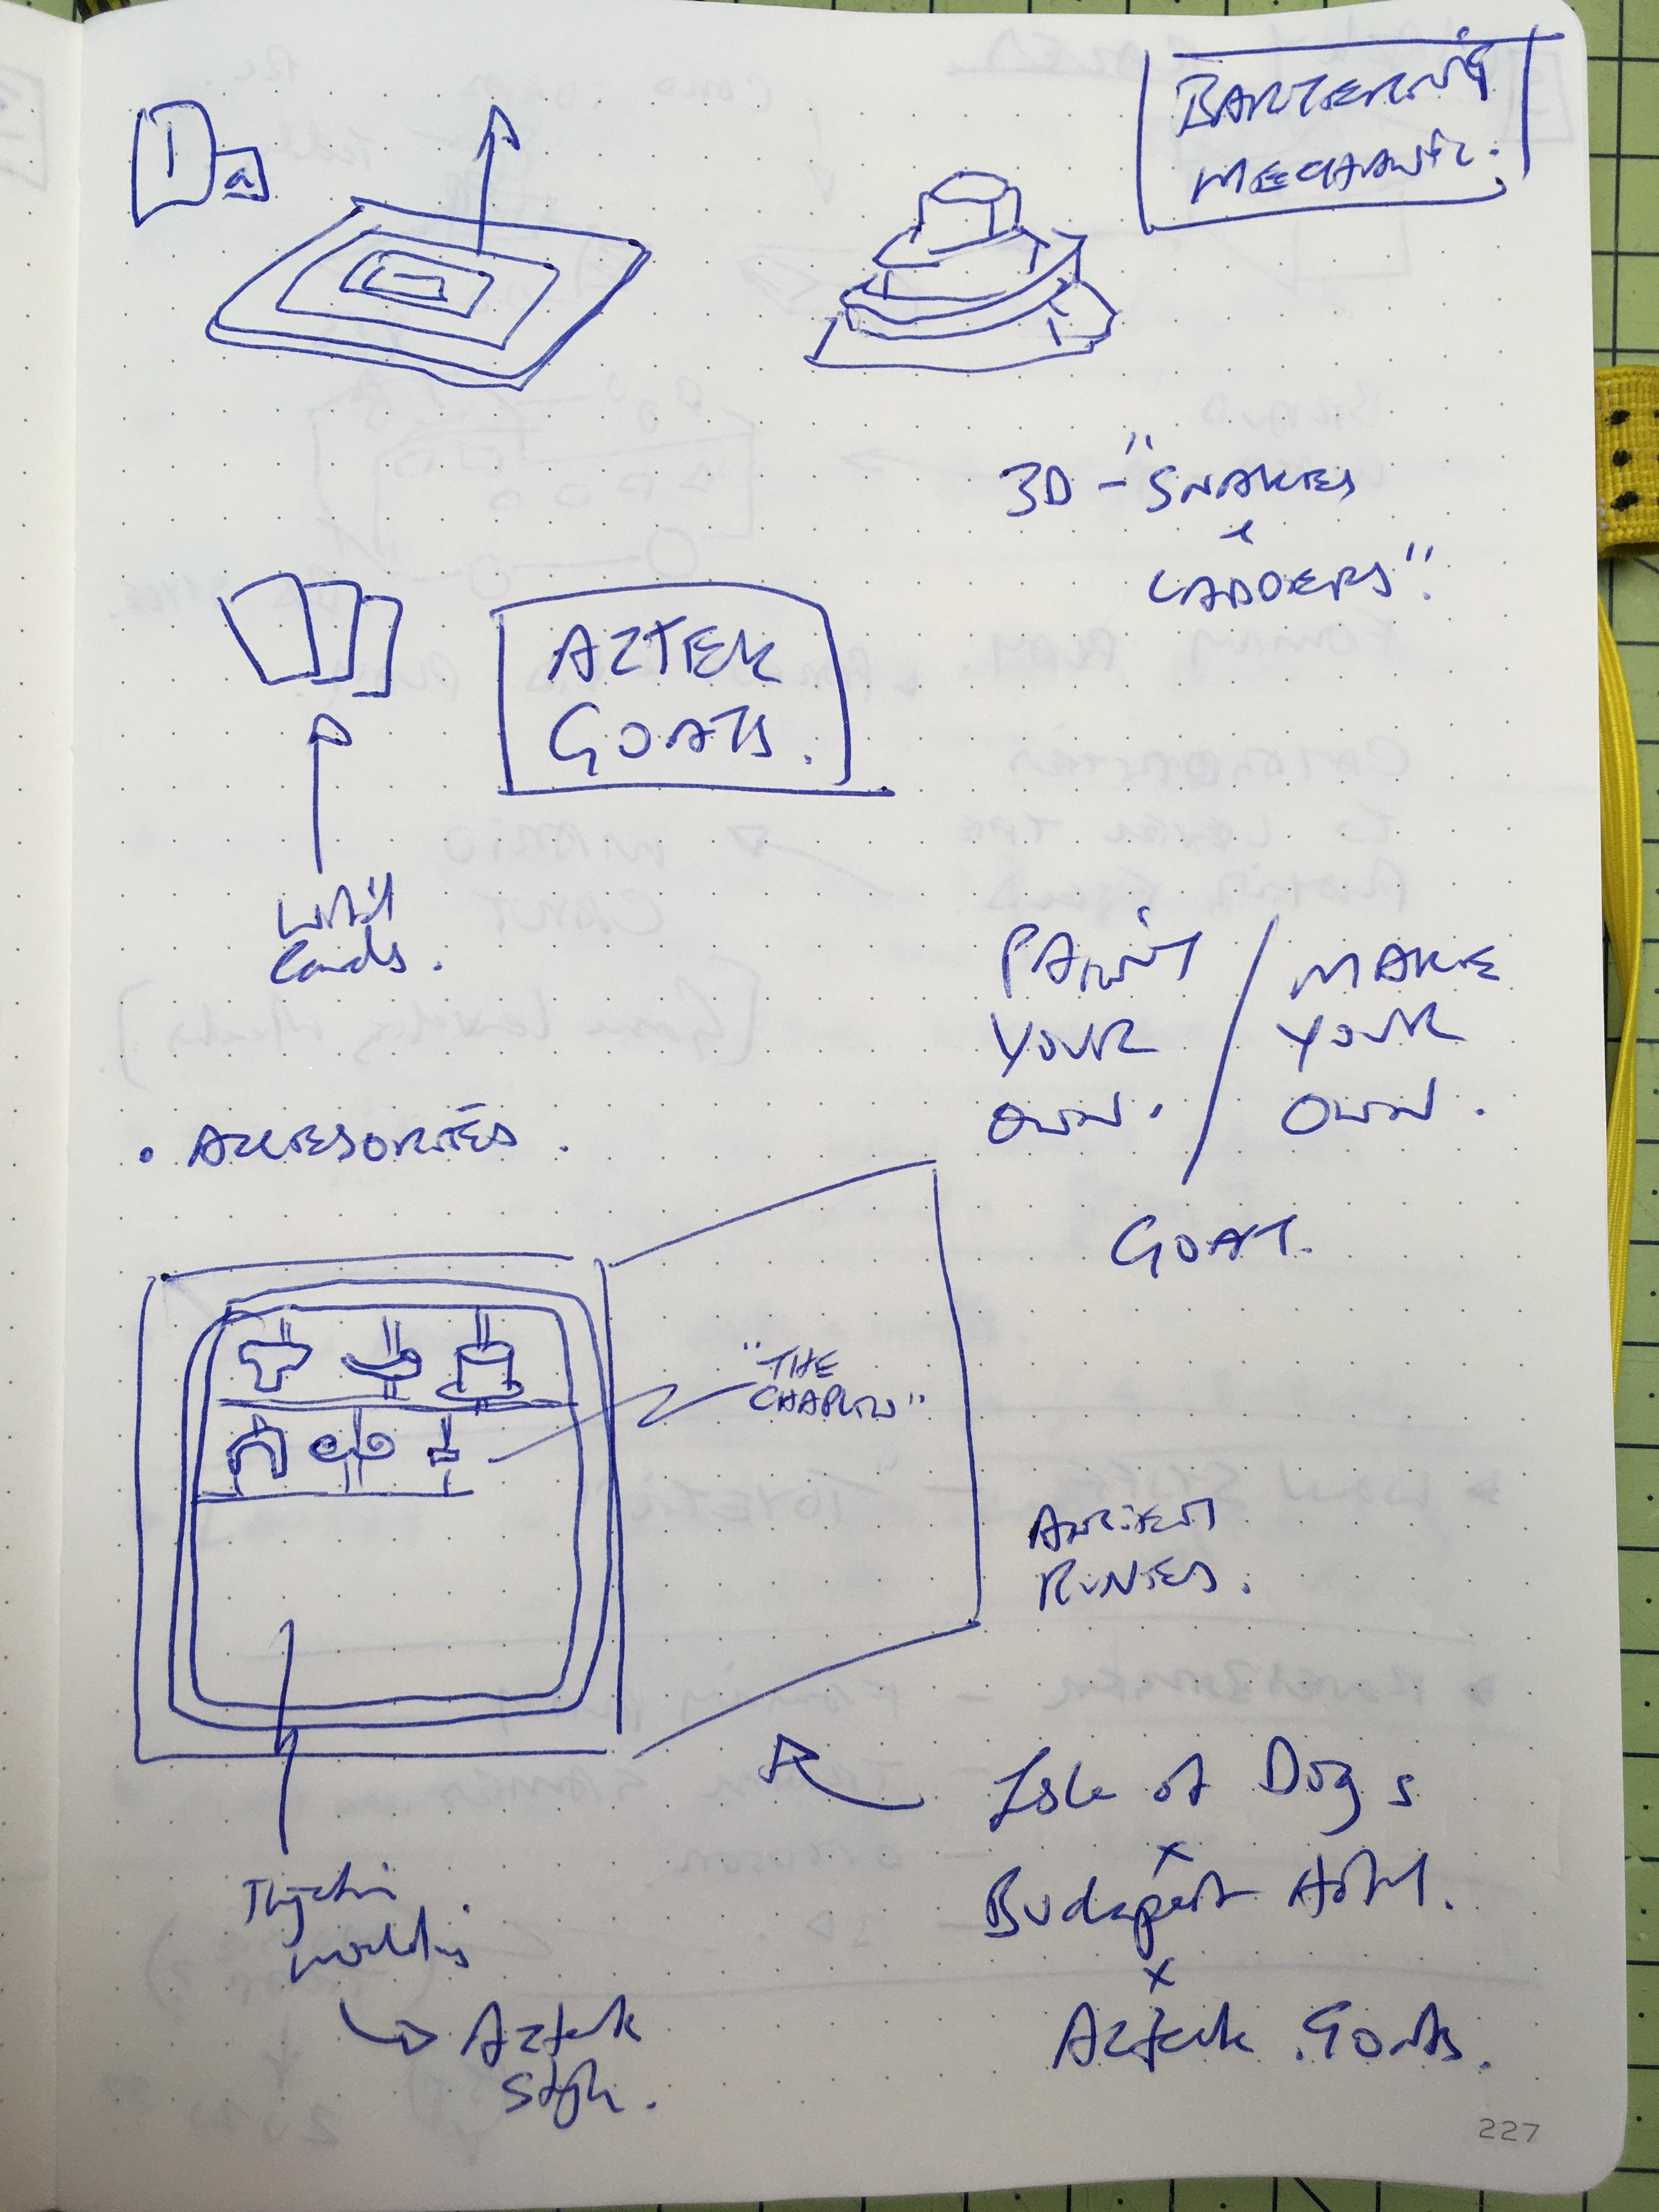 1a
BARTERING
MECHANIC.
3D - "SNAKES
&
LADDERS".
AZTEK
GOATS.
With
Cards.
PAINT
YOUR
OWN.
/
MAKE
YOUR
OWN.
GOAT.
• ACCESORIES.
"THE
CHAPLIN"
ANCIENT
RUNES.
Isle of Dogs
x
Budapest Hotel.
x
Aztek Goats.
Injection
moulding
Aztek
Style.
227